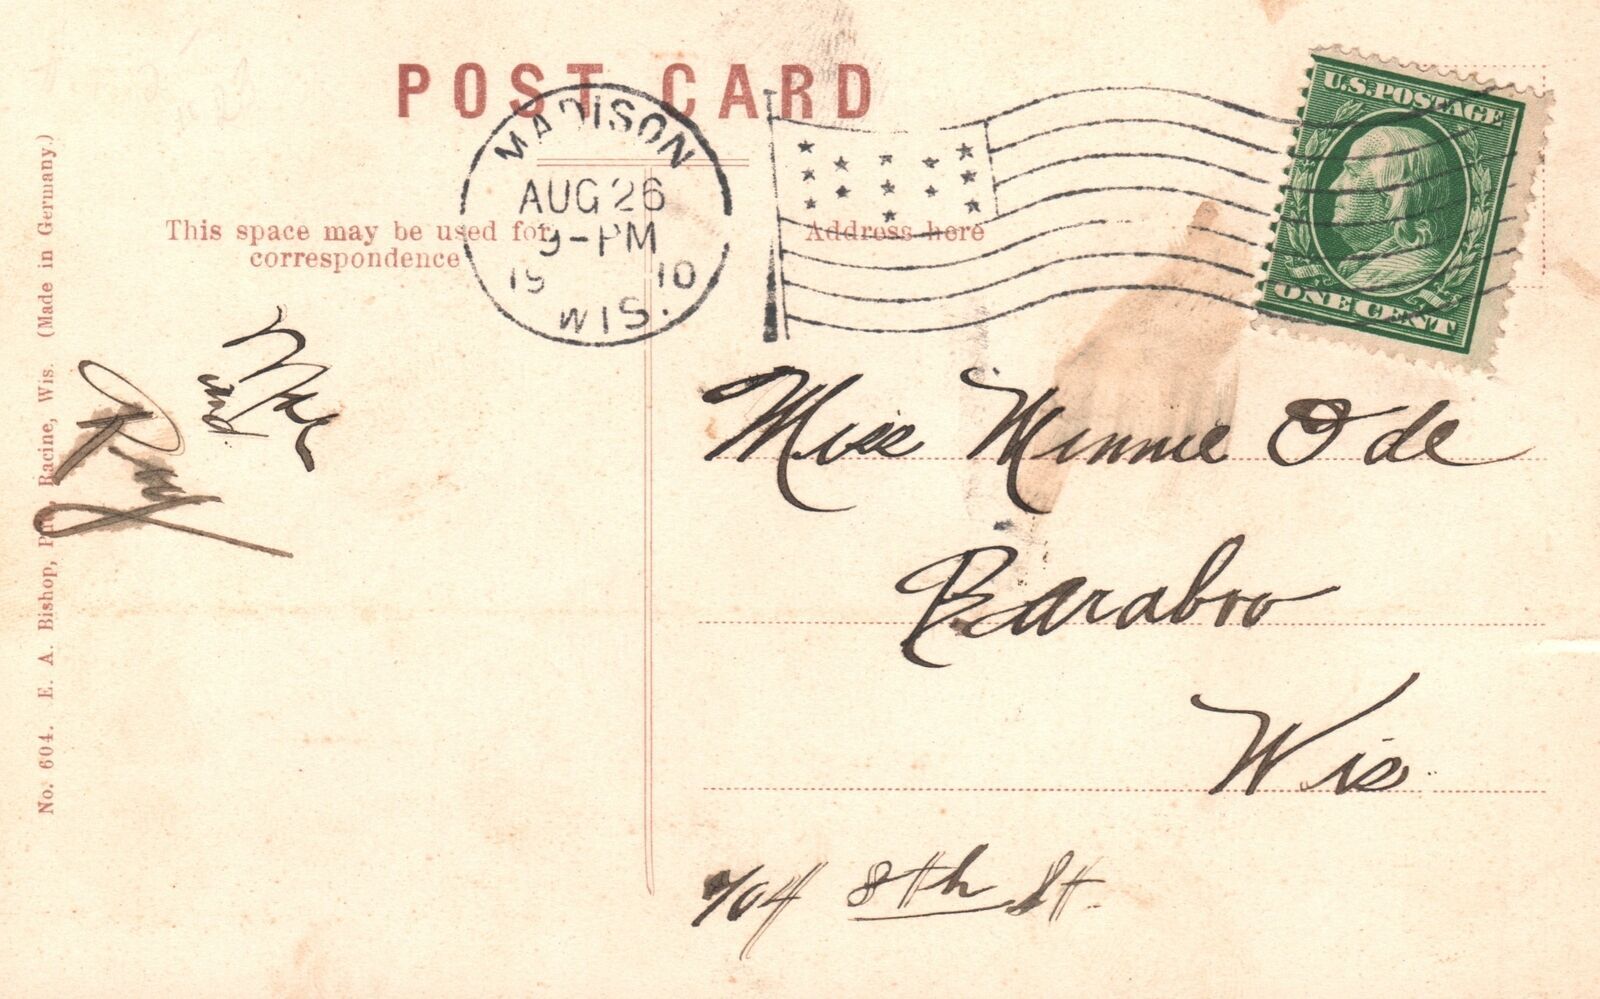 POST CARD
MADISON
AUG 26
9-PM
1910
WIS.
U.S. POSTAGE
ONE CENT
This space may be used for
correspondence
Address here
No. 604. E. A. Bishop, Pub., Racine, Wis. (Made in Germany.)
Mae
and
Ray
Miss Minnie Ode
Baraboo
Wis.
704 8th St.